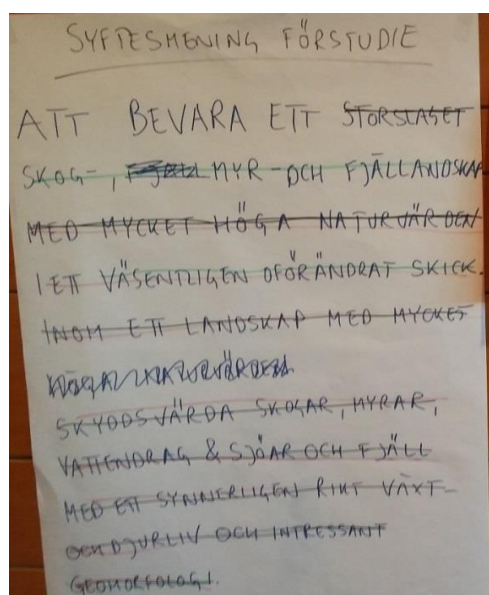 SYFTESMENING FÖRSTUDIE
ATT BEVARA ETT STORSLAGET
SKOG-, FJÄLL MYR-OCH FJÄLLANDSKAP
MED MYCKET HÖGA NATURVÄRDEN
I ETT VÄSENTLIGEN OFÖRÄNDRAT SKICK.
INOM ETT LANDSKAP MED MYCKET
HÖGA NATURVÄRDEN.
SKYDDSVÄRDA SKOGAR, MYRAR,
VATTENDRAG & SJÖAR OCH FJÄLL
MED ETT SYNNERLIGEN RIKT VÄXT-
OCH DJURLIV OCH INTRESSANT
GEOMORFOLOGI.